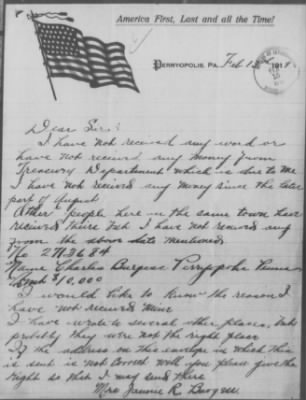 America First, Last and all the Time!
PERRYOPOLIS, PA. Feb 191
Dear Sir:
I have not received any word or
have not received any money from
Treasury Department which is due to me
I have not received any money since the later
part of August
Other people here in the same town have
received theirs but I have not received any
from the above date mentioned.
No
Name Charles Burgess Perryopolis Penna
$10,000
I would like to know the reason I
have not received mine
I have wrote to several other places, but
probably they were not the right place
If the address on this envelope in which this
is sent is not correct will you please give the
right so that I may send there
Mrs Jennie R. Burgess